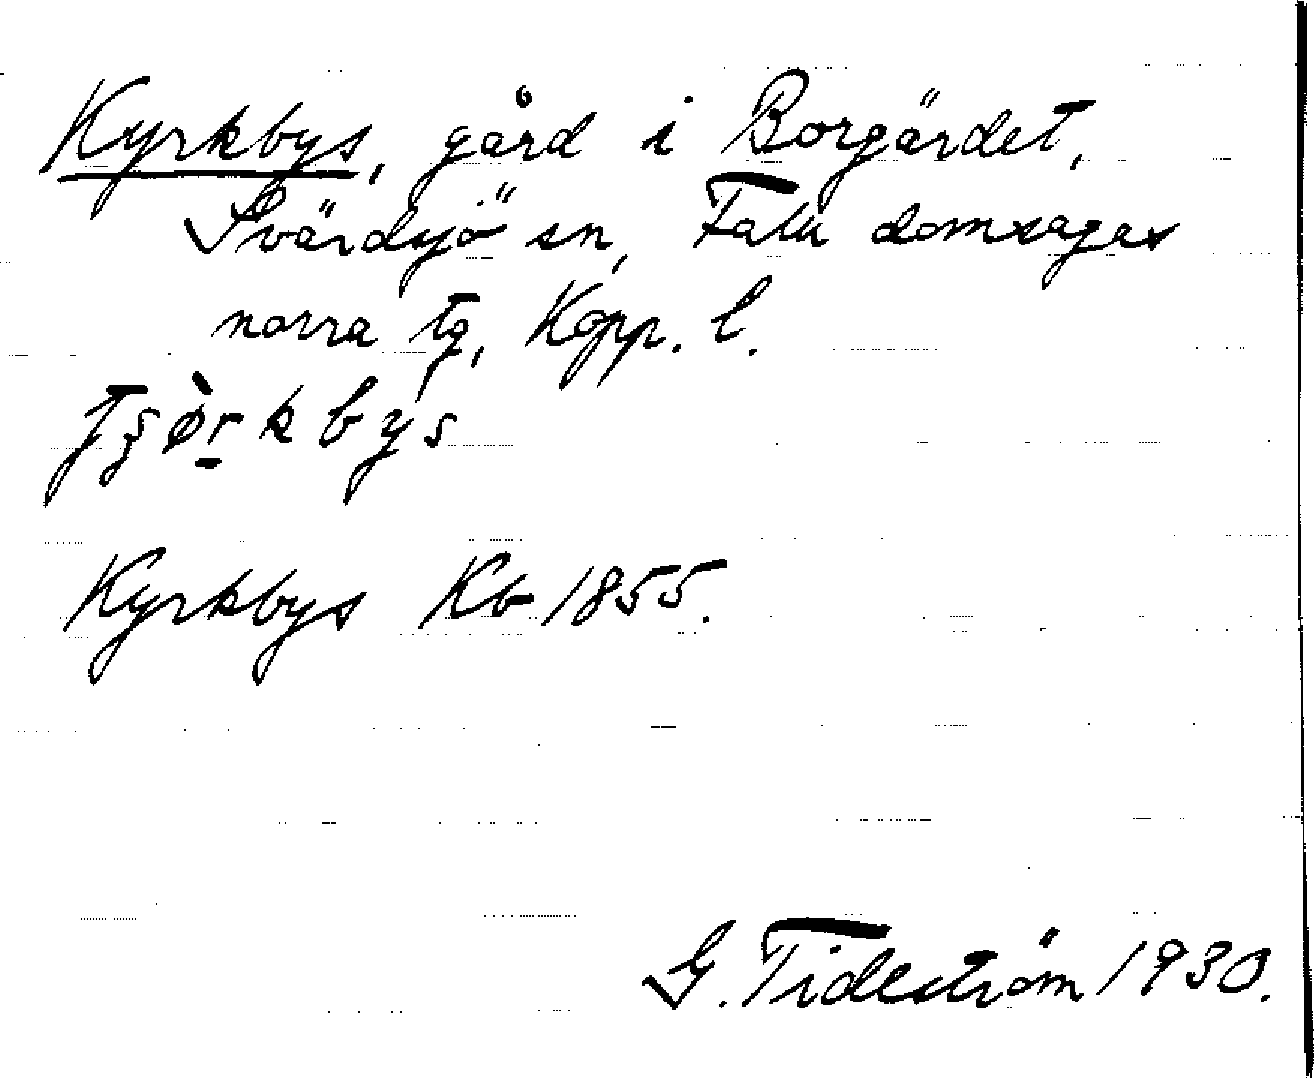 Kyrkbys, gård i Borgärdet,
Svärdsjö sn, Falu domsagas
norra tg, Kopp. l.
Kyrkbys Kb 1855.
G. Tideström 1930.